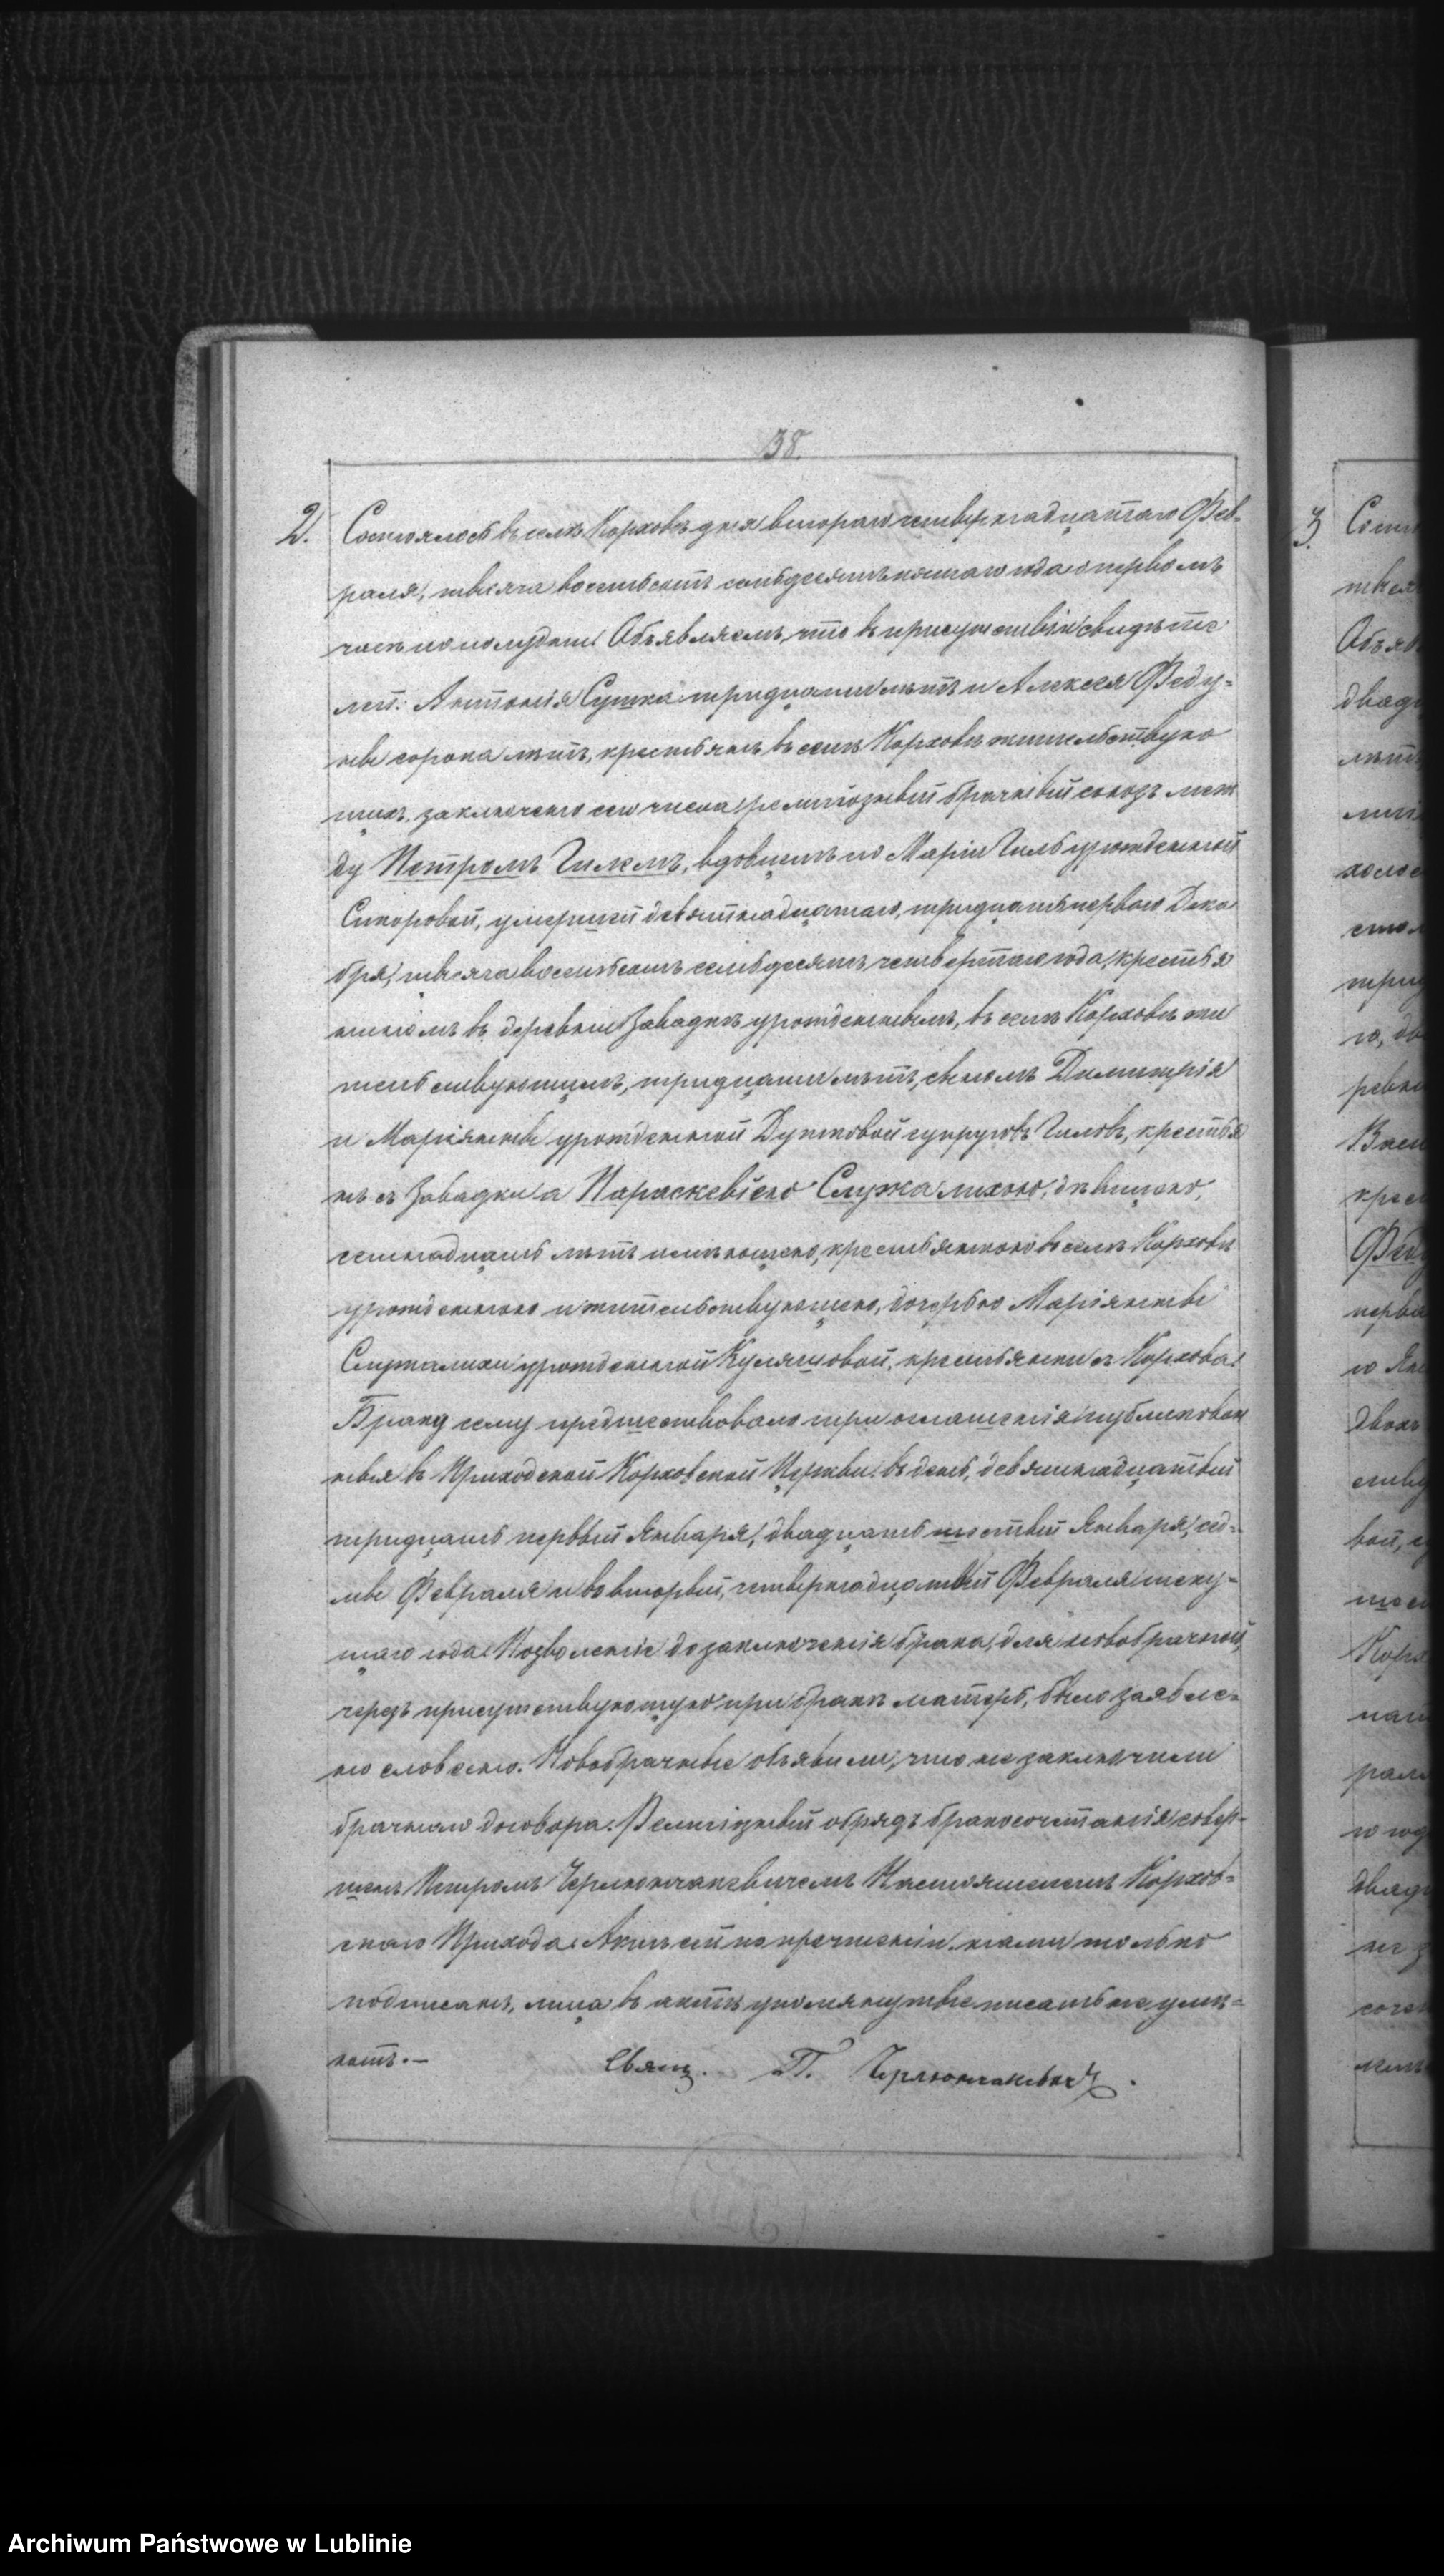 38.
2. Состоялось въ селѣ Корховѣ дня втораго четырнадцатаго Фев-
раля, тысяча восемьсотъ семьдесятъ пятаго года о первомъ
часѣ по полудни. Объявляемъ, что въ присутствіи свидѣте
лей: Антонія Сушка тридцати лѣтъ и Алексея Феду-
ны сорока лѣтъ, крестьянъ въ селѣ Корховѣ жительствую
щихъ, заключено сего числа религіозный брачный союзъ меж
ду Петромъ Гилемъ, вдовцемъ по Маріи Гиль урожденной
Сикоровой, умершей девятнадцатаго, тридцать перваго Дека
бря, тысяча восемьсотъ семьдесятъ четвертаго года, крестья
ниномъ въ деревни Завадкѣ урожденнымъ, въ селѣ Корховѣ жи
тельствующимъ, тридцати лѣтъ, сыномъ Димитрія
и Маріянны урожденной супруговъ Гиловъ, крестья
нъ съ Завадки а Параскевіею Служалихою, дѣвицею,
семнадцать лѣтъ имѣющею, крестьянкою въ селѣ Корховѣ
урожденною и жительствующею, дочерью Маріянны
Служалихи урожденной Куляшовой, крестьянки съ Корхова.
Браку сему предшествовало три оглашенія публикован
ныя въ Приходской Корховской Церкви въ день, девятнадцатый
тридцать первый Января, двадцать шестый Января, сед-
мы Февраля и во вторый, четырнадцатый Февраля теку-
щаго года. Позволеніе до заключенія брака, для новобрачной,
черезъ присутствующую при бракѣ матерь, было заявле-
но словесно. Новобрачные объявили, что не заключили
брачнаго договора. Религіозный обрядъ бракосочетанія совер-
шенъ Петромъ Черлюнчакевичемъ Настоятелемъ Корхов-
скаго Прихода. Актъ сей по прочтеніи нами только
подписанъ, лица въ актѣ упомянутые писать не умѣ-
ютъ.—
Свящ. П. Черлюнчакевичъ.
3. Сост
Объяв